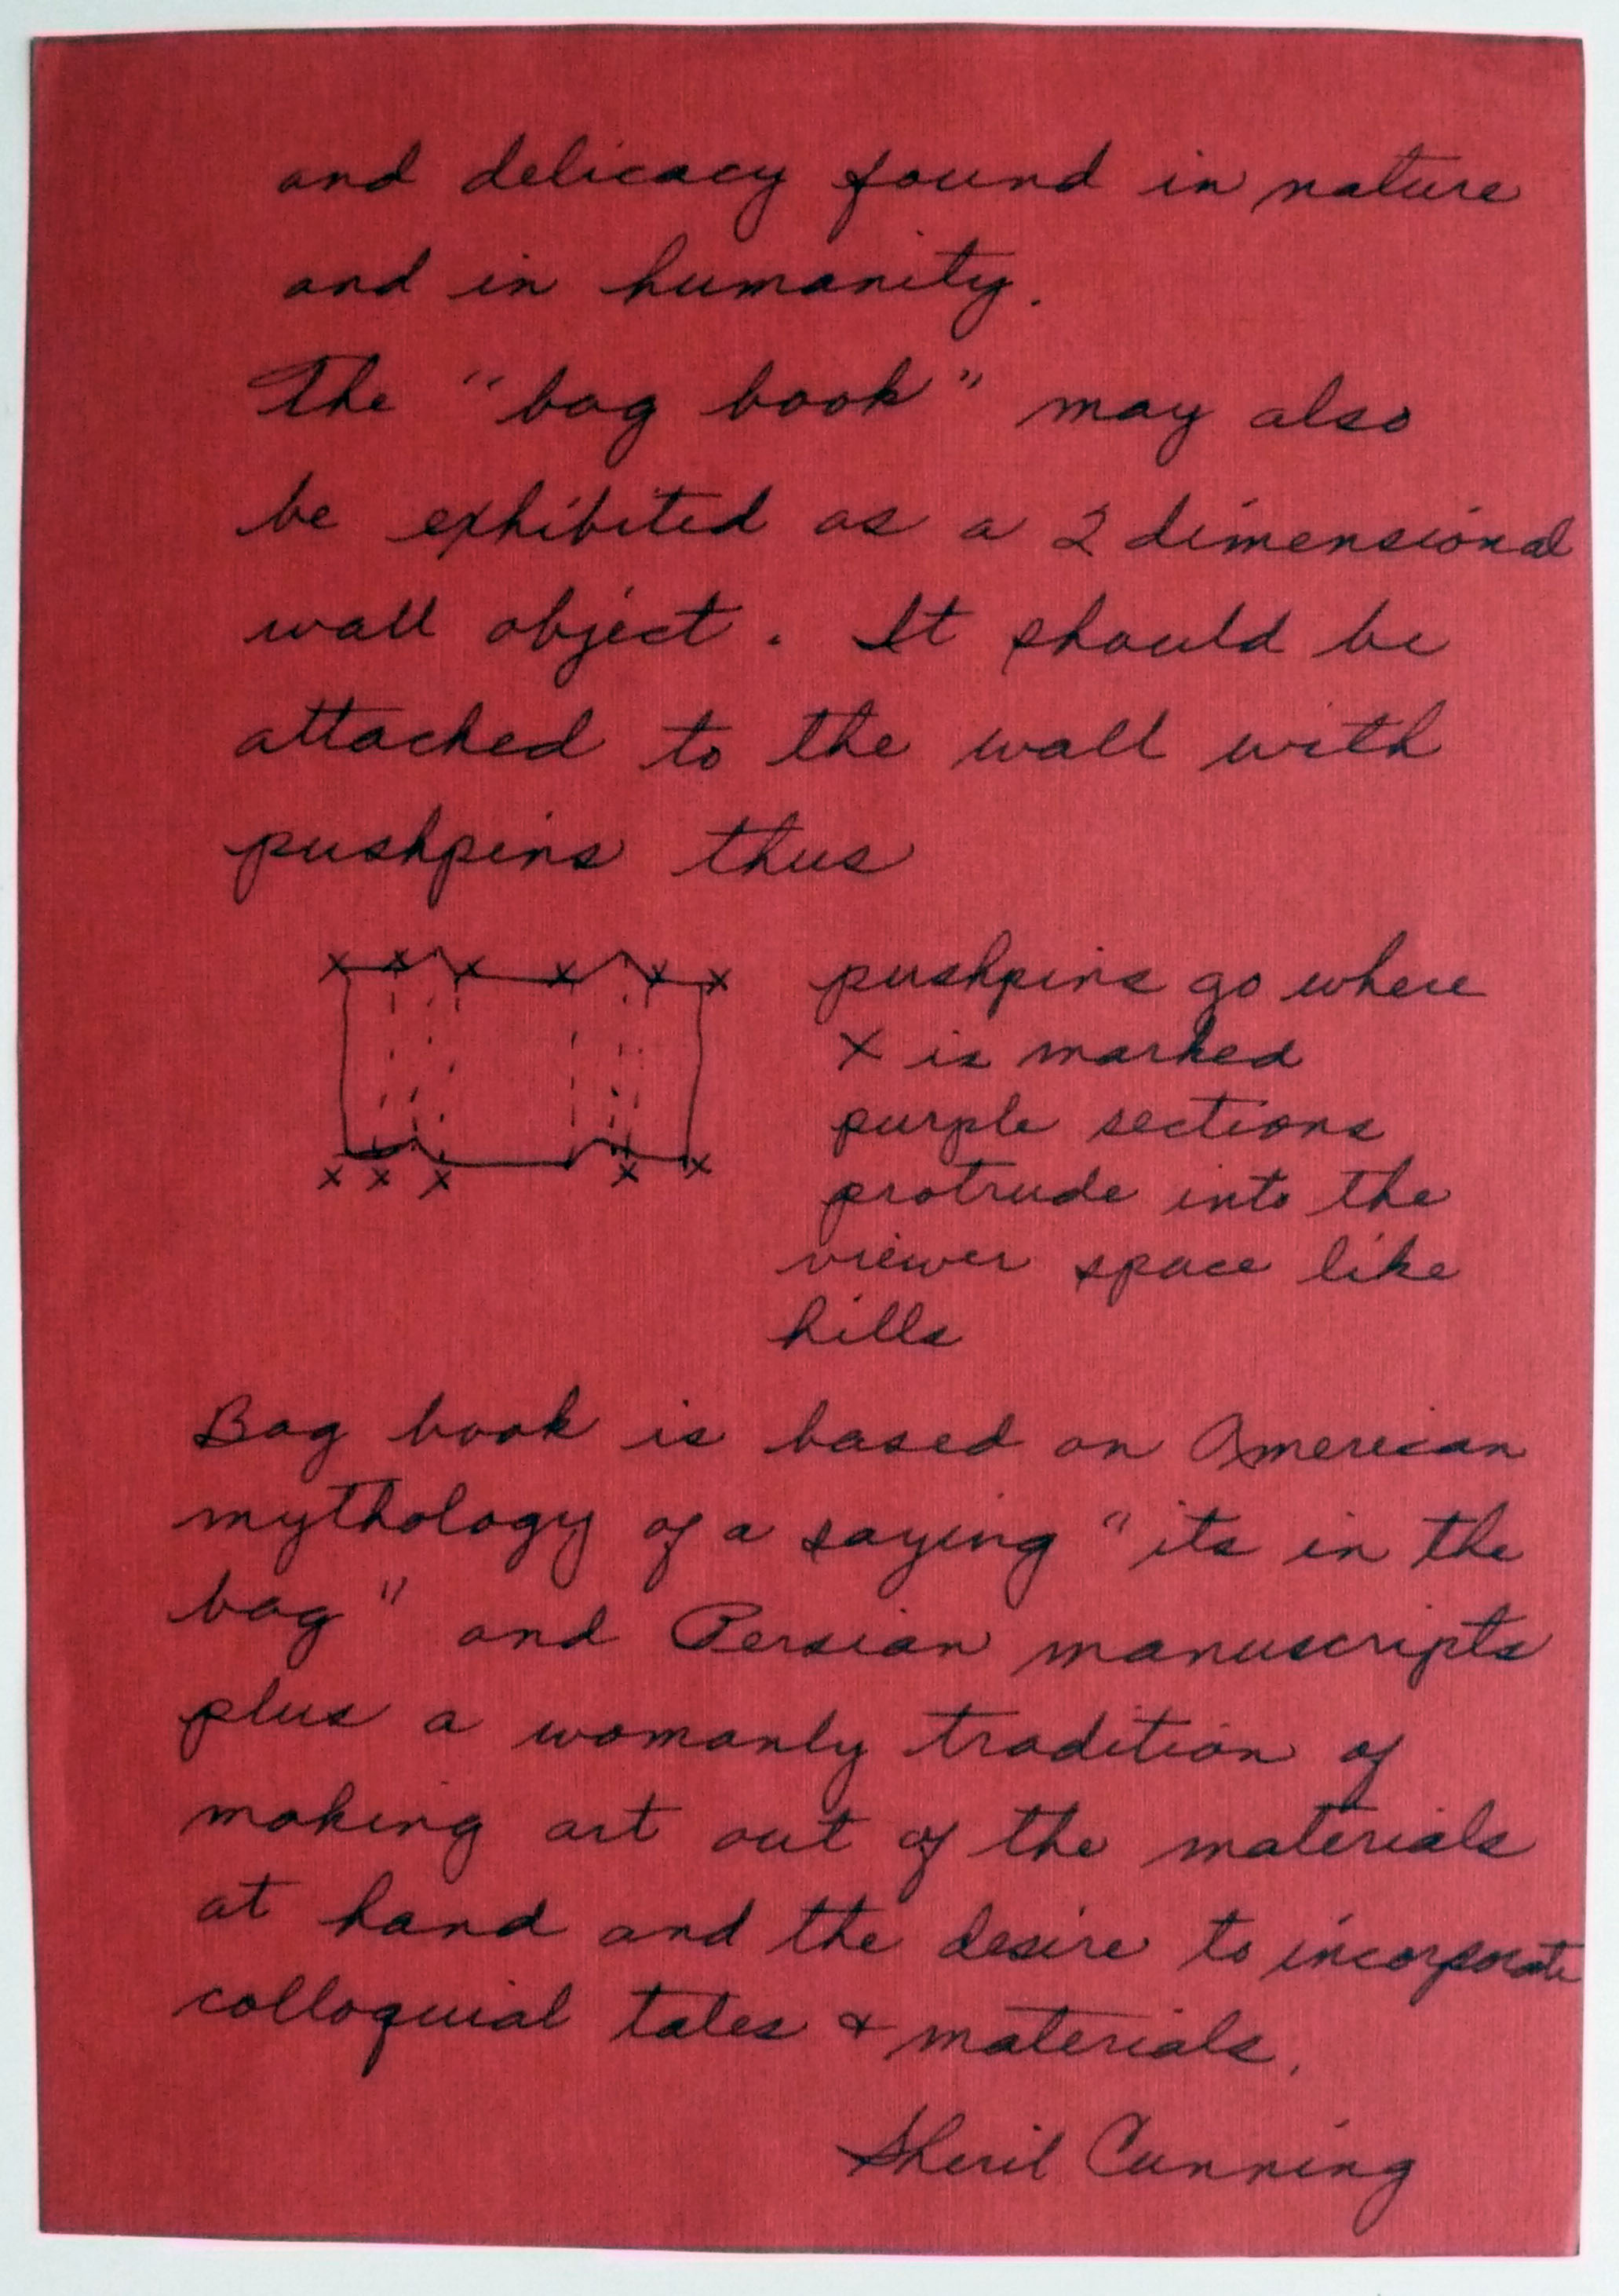 and delicacy found in nature
and in humanity.
The "bag book" may also
be exhibited as a 2 dimensional
wall object. It should be
attached to the wall with
pushpins thus
x x x x x x
x x x x x
pushpins go where
x is marked
purple sections
protrude into the
viewer space like
hills
Bag book is based on American
mythology of a saying "its in the
bag" and Persian manuscripts
plus a womanly tradition of
making art out of the materials
at hand and the desire to incorporate
colloquial tales & materials.
Sheril Cunning